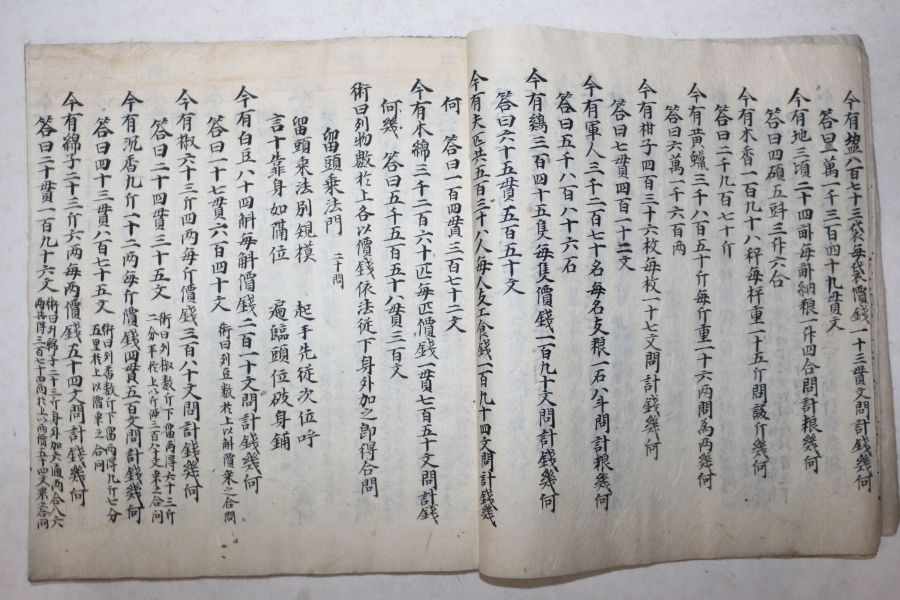 今有塩八百七十三袋每袋價錢一十三貫文問計錢幾何
答曰一萬一千三百四十九貫文
今有地三頃二十四畝每畝納粮一升四合問計粮幾何
答曰四碩五㪷三升六合
今有木香一百九十八秤每秤重一十五斤問該斤幾何
答曰二千九百七十斤
今有黄蠟三千八百五十斤每斤重一十六兩問為兩幾何
答曰六萬一千六百兩
今有柑子四百三十六枚每枚一十七文問計錢幾何
答曰七貫四百一十二文
今有軍人三千二百七十名每名支粮一石八斗問計粮幾何
答曰五千八百八十六石
今有鷄三百四十五隻每隻價錢一百九十文問計錢幾何
答曰六十五貫五百五十文
今有夫匠共五百三十八人每人支工食錢一百九十四文問計錢幾
何 答曰一百四貫三百七十二文
今有木綿三千二百六十匹每匹價錢一貫七百五十文問計錢
何幾 答曰五千五百五十八貫三百文
術曰列物數於上各以價錢依法從下身外加之即得合問
留頭乗法門 二十問
留頭乗法別規模 起手先從次位呼
言十靠身如隔位 遍臨頭位破身鋪
今有白豆八十四斛每斛價錢二百一十文問計錢幾何
答曰一十七貫六百四十文 術曰列豆數於上以斛價乗之合問
今有椒六十三斤四兩每斤價錢三百八十文問計錢幾何
答曰二十四貫三十五文 術曰列椒數斤下留兩得六十三斤
二分半於上以斤價三百八十文乗之合問
今有沉香九斤一十二兩每斤價錢四貫五百文問計錢幾何
答曰四十三貫八百七十五文 術曰列香數斤下留兩得九斤七分
五里於上以價乗之合問
今有綿子二十三斤六兩每兩價錢五十四文問計錢幾何
答曰二十貫一百九十六文 術曰列綿子二十三斤身外加六通兩合入六
兩共得三百七十四兩於上以兩價五十四文乗之合問